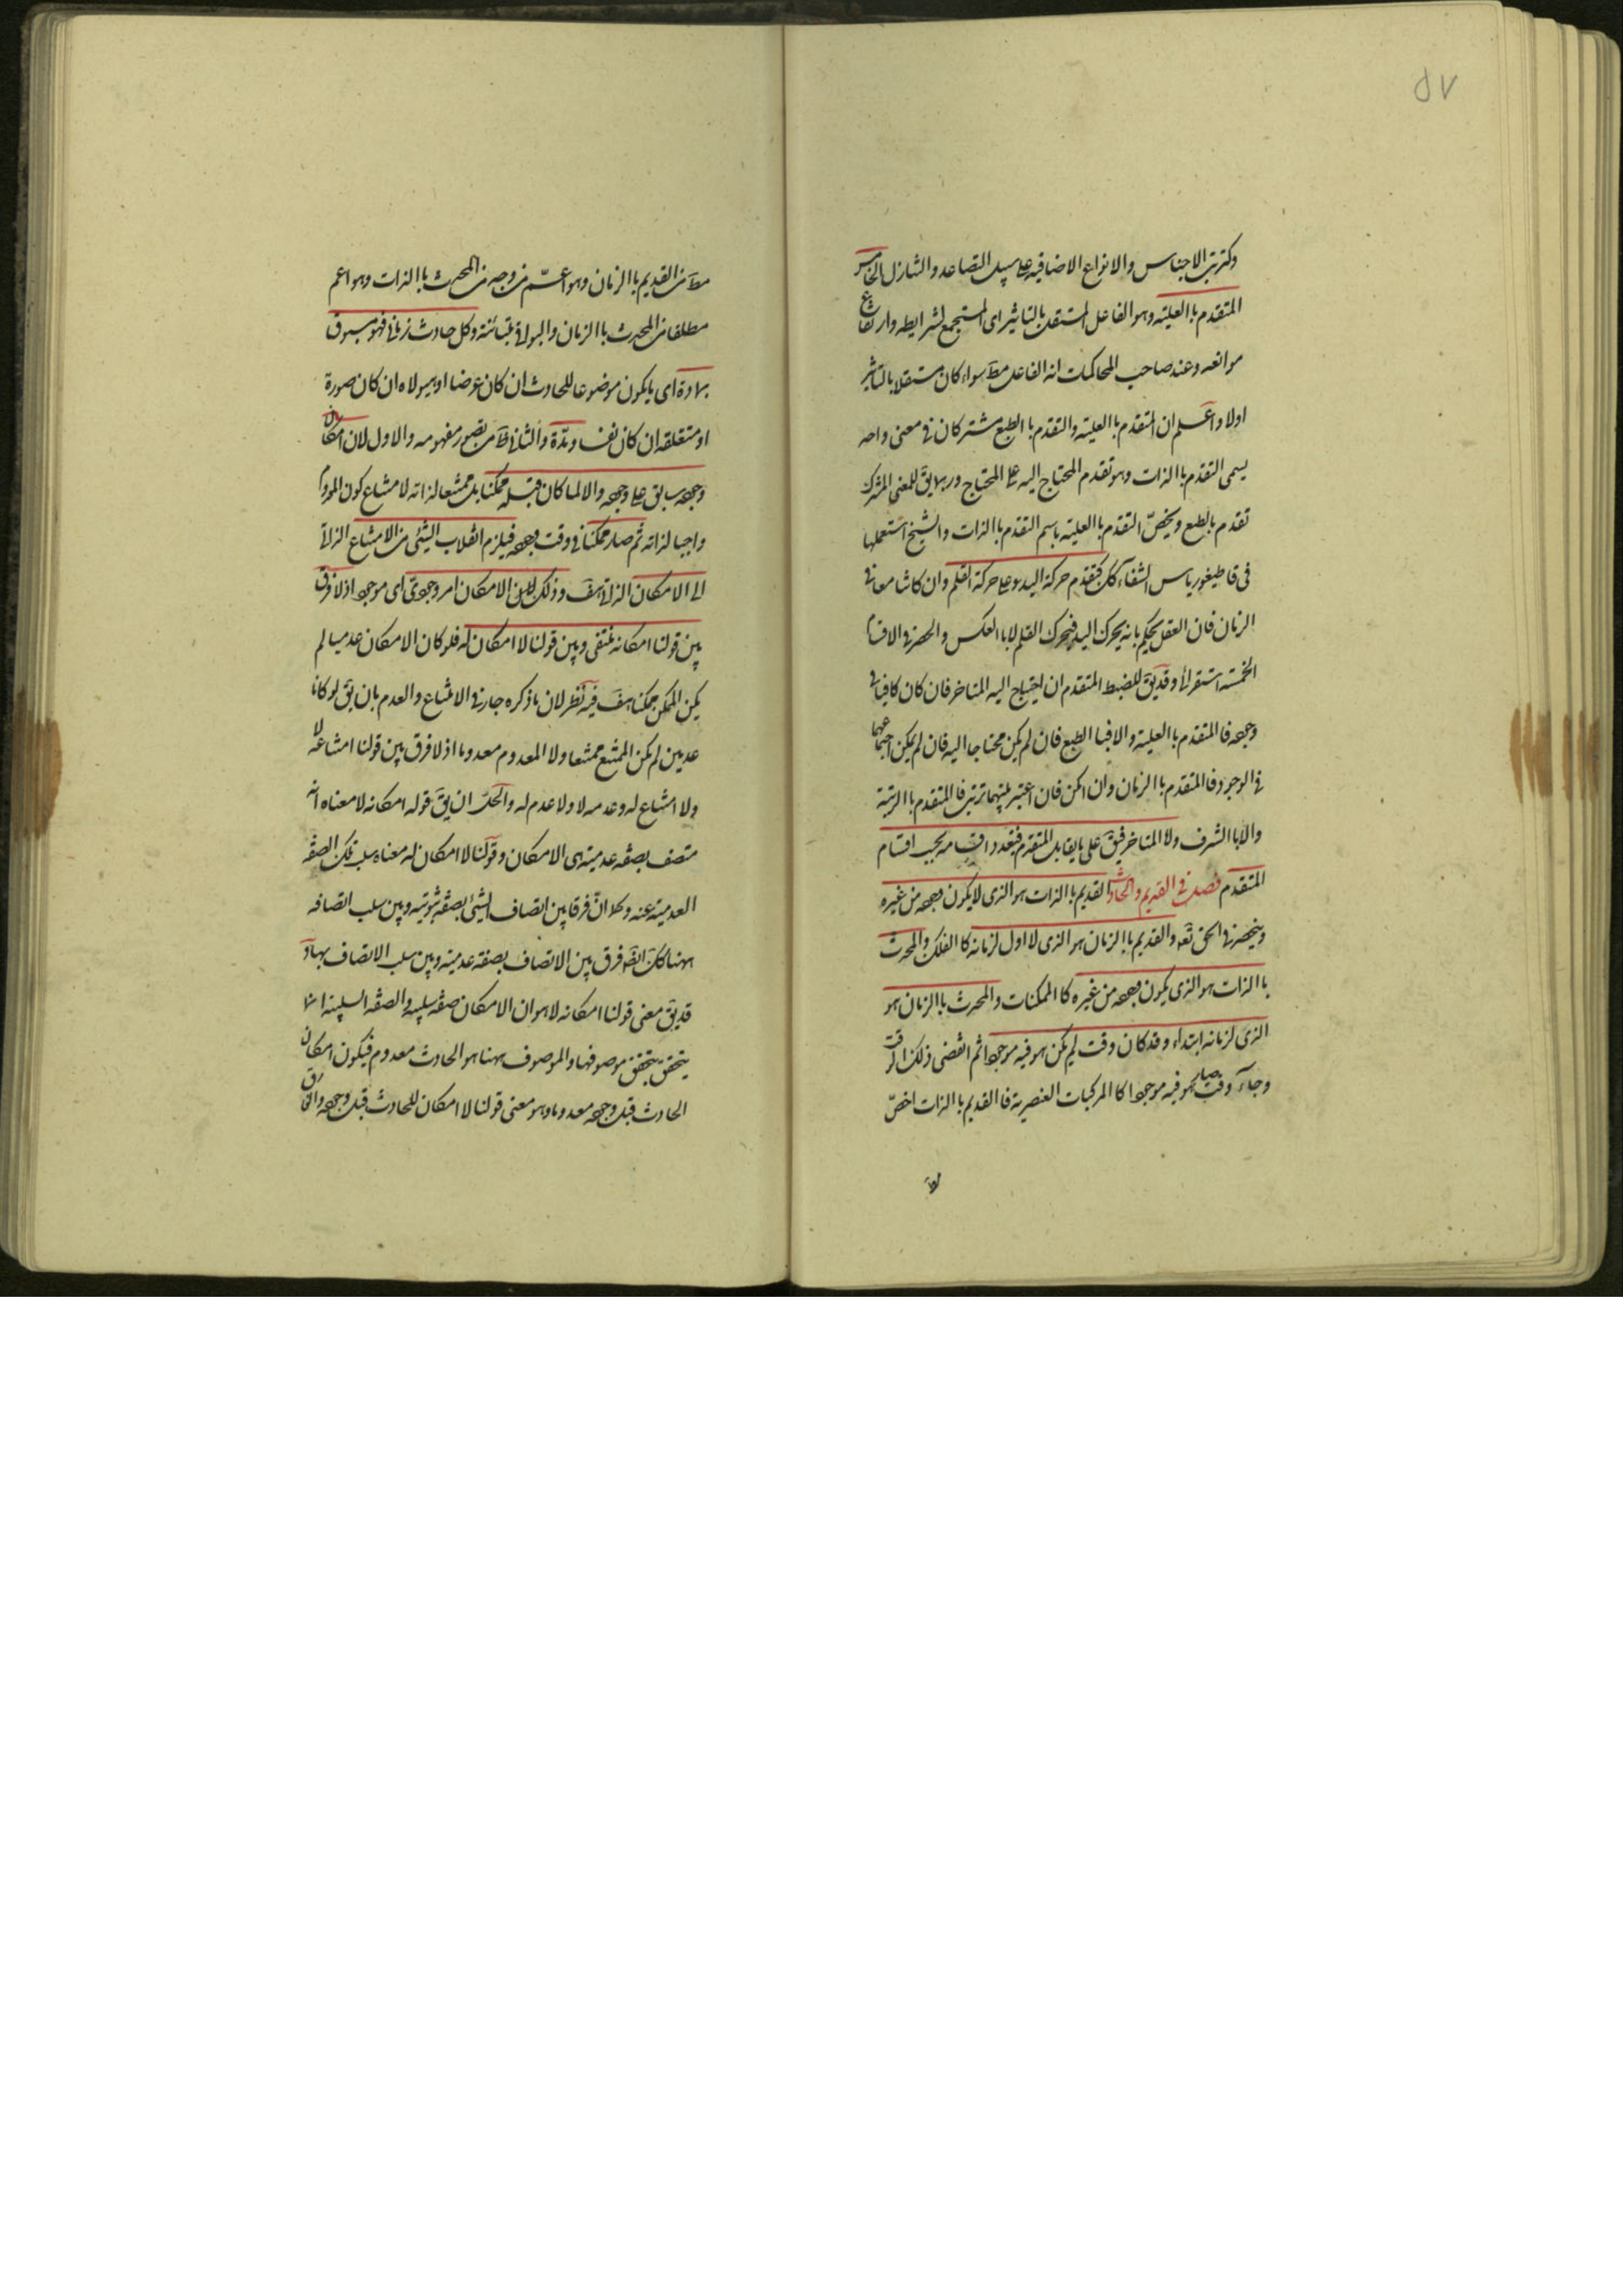 ٥٧
وكترتب الاجناس والانواع الاضافية على سبيل التصاعد والتنازل الخامس
المتقدم باالعلية وهو الفاعل المستقل بالتاثير اى المستجمع لشرايطه وارتفاع
موانعه وعند صاحب المحاكمات انه الفاعل مط سواء كان مستقلا بالتاثير
اولا واعلم ان المتقدم باالعلية والتقدم باالطبع مشتركان فى معنى واحد
يسمى التقدم باالذات وهو تقدم المحتاج اليه على المحتاج وربما يق للمعنى المشترك
تقدم بالطبع ويخصّ التقدم باالعلية باسم التقدم باالذات والشيخ استعملها
فى قاطيغورياس الشفاء كك كتقدم حركة اليد على حركة القلم وان كانتا معا فى
الزمان فان العقل يحكم بانه يحرك اليد فيحرك القلم لا باالعكس والحصر فى الاقسام
الخمسة استقرائى وقد يق للضبط المتقدم ان احتياج اليه المتاخر فان كان كافيا فى
وجوده فاالمتقدم باالعلية والا فباالطبع فان لم يكن محتاجا اليه فان لم يمكن اجتماعهما
فى الوجود فاالمتقدم باالزمان وان امكن فان اعتبر بينهما ترتب فاالمتقدم باالرتبة
والا باالشرف ولا المتاخر فيق على ما يقابل المتقدم فتعدد اقسامه بحسب اقسام
المتقدم فصل فى القديم والحادث القديم باالذات هو الذى لا يكون وجوده من غيره
وينحصر فى الحق تعه والقديم باالزمان هو الذى لا اول لزمانه كاالفلك والمحدث
باالذات هو الذى يكون وجوده من غيره كاالممكنات والمحدث باالزمان هو
الذى لزمانه ابتداء وقد كان وقت لم يكن هو فيه موجودا ثم انقضى ذلك الوقت
وجاء وقت صار هو فيه موجودا كاالمركبات العنصرية فاالقديم باالذات اخصّ
مط من القديم باالزمان وهو اعمّ من وجه من المحدث باالذات وهو اعم
مطلقا من المحدث باالزمان والبواقى متباينة وكل حادث زمانى فهو مسبوق
بمادة اى ما يكون موضوعا للحادث ان كان عرضا او هيولاه ان كان صورة
او متعلقه ان كان نفسا ومدّة والثانى ظ من تصور مفهومه والاول لان امكان
وجوده سابق على وجوده والا لما كان قبله ممكنا بل ممتنعا لذاته لامتناع كون المعدوم
واجبا لذاته ثم صار ممكنا فى وقت وجوده فيلزم انقلاب الشيئى من الامتناع الذاتى
الى الامكان الذاتى هف وذلك لان الامكان امر وجودىّ اى موجود اذ لا فرق
بين قولنا امكانه منتفى وبين قولنا لا امكان له فلو كان الامكان عدميا لم
يكن الممكن ممكنا هف فيه نظر لان ما ذكره جار فى الامتناع والعدم بان يق لو كانا
عدميين لم يكن الممتنع ممتنعا ولا المعدوم معدوما اذ لا فرق بين قولنا امتناعه لا
ولا امتناع له وعدمه لا ولا عدم له والحلّ ان يق قوله امكانه لا معناه انه
متصف بصفه عدمية هى الامكان وقولنا لا امكان له معناه سلب تلك الصفه
العدمية عنه وكما انّ فرقا بين اتصاف الشيئ بصفه ثبوتيه وبين سلب اتصافه
بها كك ايضا فرق بين الاتصاف بصفه عدمية وبين سلب الاتصاف بها و
قد يق معنى قولنا امكانه لا هو ان الامكان صفه سلبيه والصفه السلبية انما
يتحقق بتحقق موصوفها والموصوف ههنا هو الحادث معدوم فيكون امكان
الحادث قبل وجوده معدوما وهو معنى قولنا لا امكان للحادث قبل وجوده واتحاق
مط